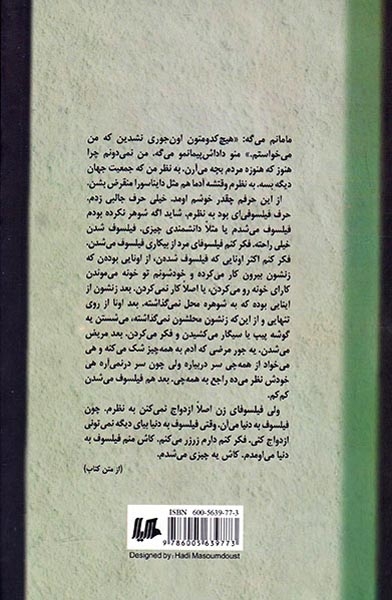 مامانم می‌گه: «هیچ‌کدومتون اون‌جوری نشدین که من
می‌خواستم.» منو داداش‌پیمانمو می‌گه. من نمی‌دونم چرا
هنوز که هنوزه مردم بچه می‌آرن. به نظر من که جمعیت جهان
دیگه بسه. به نظرم وقتشه آدما هم مثل دایناسورا منقرض بشن.
از این حرفم چقدر خوشم اومد. خیلی حرف جالبی زدم.
حرف فیلسوفی‌ای بود به نظرم. شاید اگه شوهر نکرده بودم
فیلسوف می‌شدم یا مثلاً دانشمندی چیزی. فیلسوف شدن
خیلی راحته. فکر کنم فیلسوفای مرد از بیکاری فیلسوف می‌شدن.
فکر کنم اکثر اونایی که فیلسوف شده‌ن، از اونایی بوده‌ن که
زنشون بیرون کار می‌کرده و خودشونم تو خونه می‌موندن
کارای خونه رو می‌کردن، یا اصلاً کار نمی‌کردن. بعد زنشون از
اینایی بوده که به شوهره محل نمی‌گذاشته. بعد اونا از روی
تنهایی و از این‌که زنشون محلشون نمی‌گذاشته، می‌شستن یه
گوشه پیپ یا سیگار می‌کشیدن و فکر می‌کردن. بعد مریض
می‌شدن. یه جور مرضی که آدم به همه‌چیز شک می‌کنه و هی
می‌خواد از همه‌چی سر دربیاره ولی چون سر درنمی‌آره هی
خودش نظر می‌ده راجع به همه‌چی. بعد هم فیلسوف می‌شدن
کم‌کم.
ولی فیلسوفای زن اصلاً ازدواج نمی‌کنن به نظرم. چون
فیلسوف به دنیا می‌آن. وقتی فیلسوف به دنیا بیای دیگه نمی‌تونی
ازدواج کنی. فکر کنم دارم زرزر می‌کنم. کاش منم فیلسوف به
دنیا می‌اومدم. کاش یه چیزی می‌شدم.
(از متن کتاب)
ISBN 600-5639-77-3
9786005639773
هیلا
Designed by: Hadi Masoumdoust